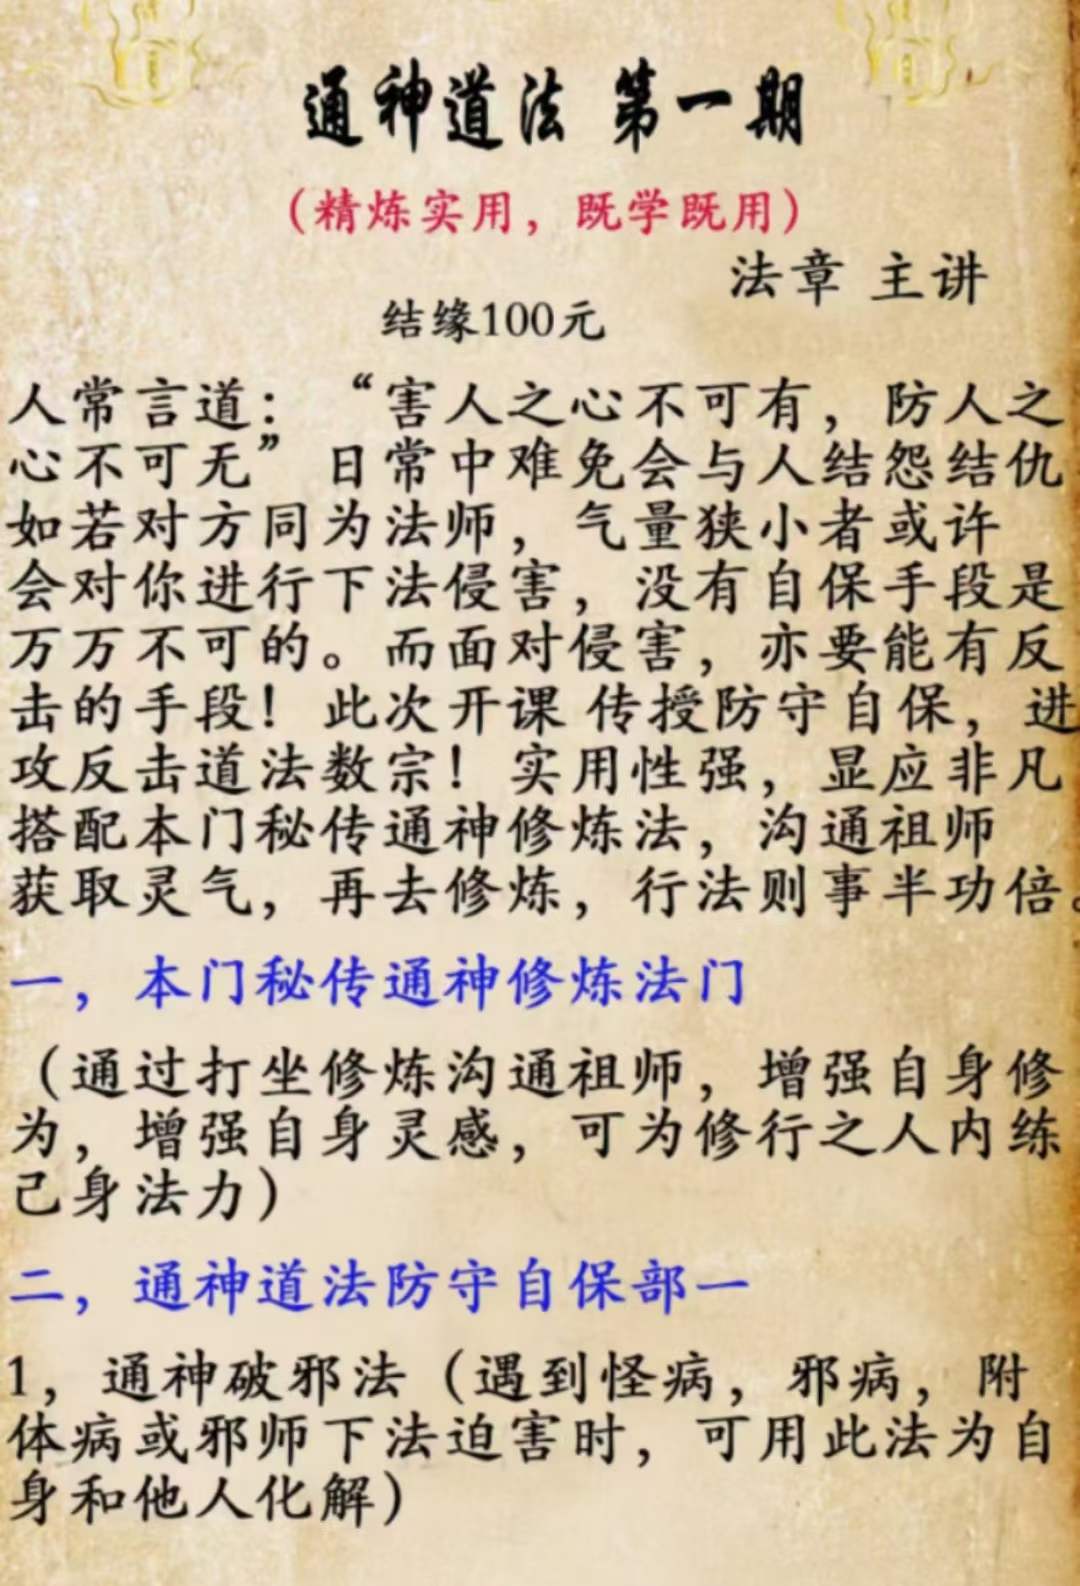 通神道法 第一期
（精炼实用，既学既用）
法章 主讲
结缘100元
人常言道：“害人之心不可有，防人之
心不可无”日常中难免会与人结怨结仇
如若对方同为法师，气量狭小者或许
会对你进行下法侵害，没有自保手段是
万万不可的。而面对侵害，亦要能有反
击的手段！此次开课 传授防守自保，进
攻反击道法数宗！实用性强，显应非凡
搭配本门秘传通神修炼法，沟通祖师
获取灵气，再去修炼，行法则事半功倍。
一，本门秘传通神修炼法门
（通过打坐修炼沟通祖师，增强自身修
为，增强自身灵感，可为修行之人内练
己身法力）
二，通神道法防守自保部一
1，通神破邪法（遇到怪病，邪病，附
体病或邪师下法迫害时，可用此法为自
身和他人化解）